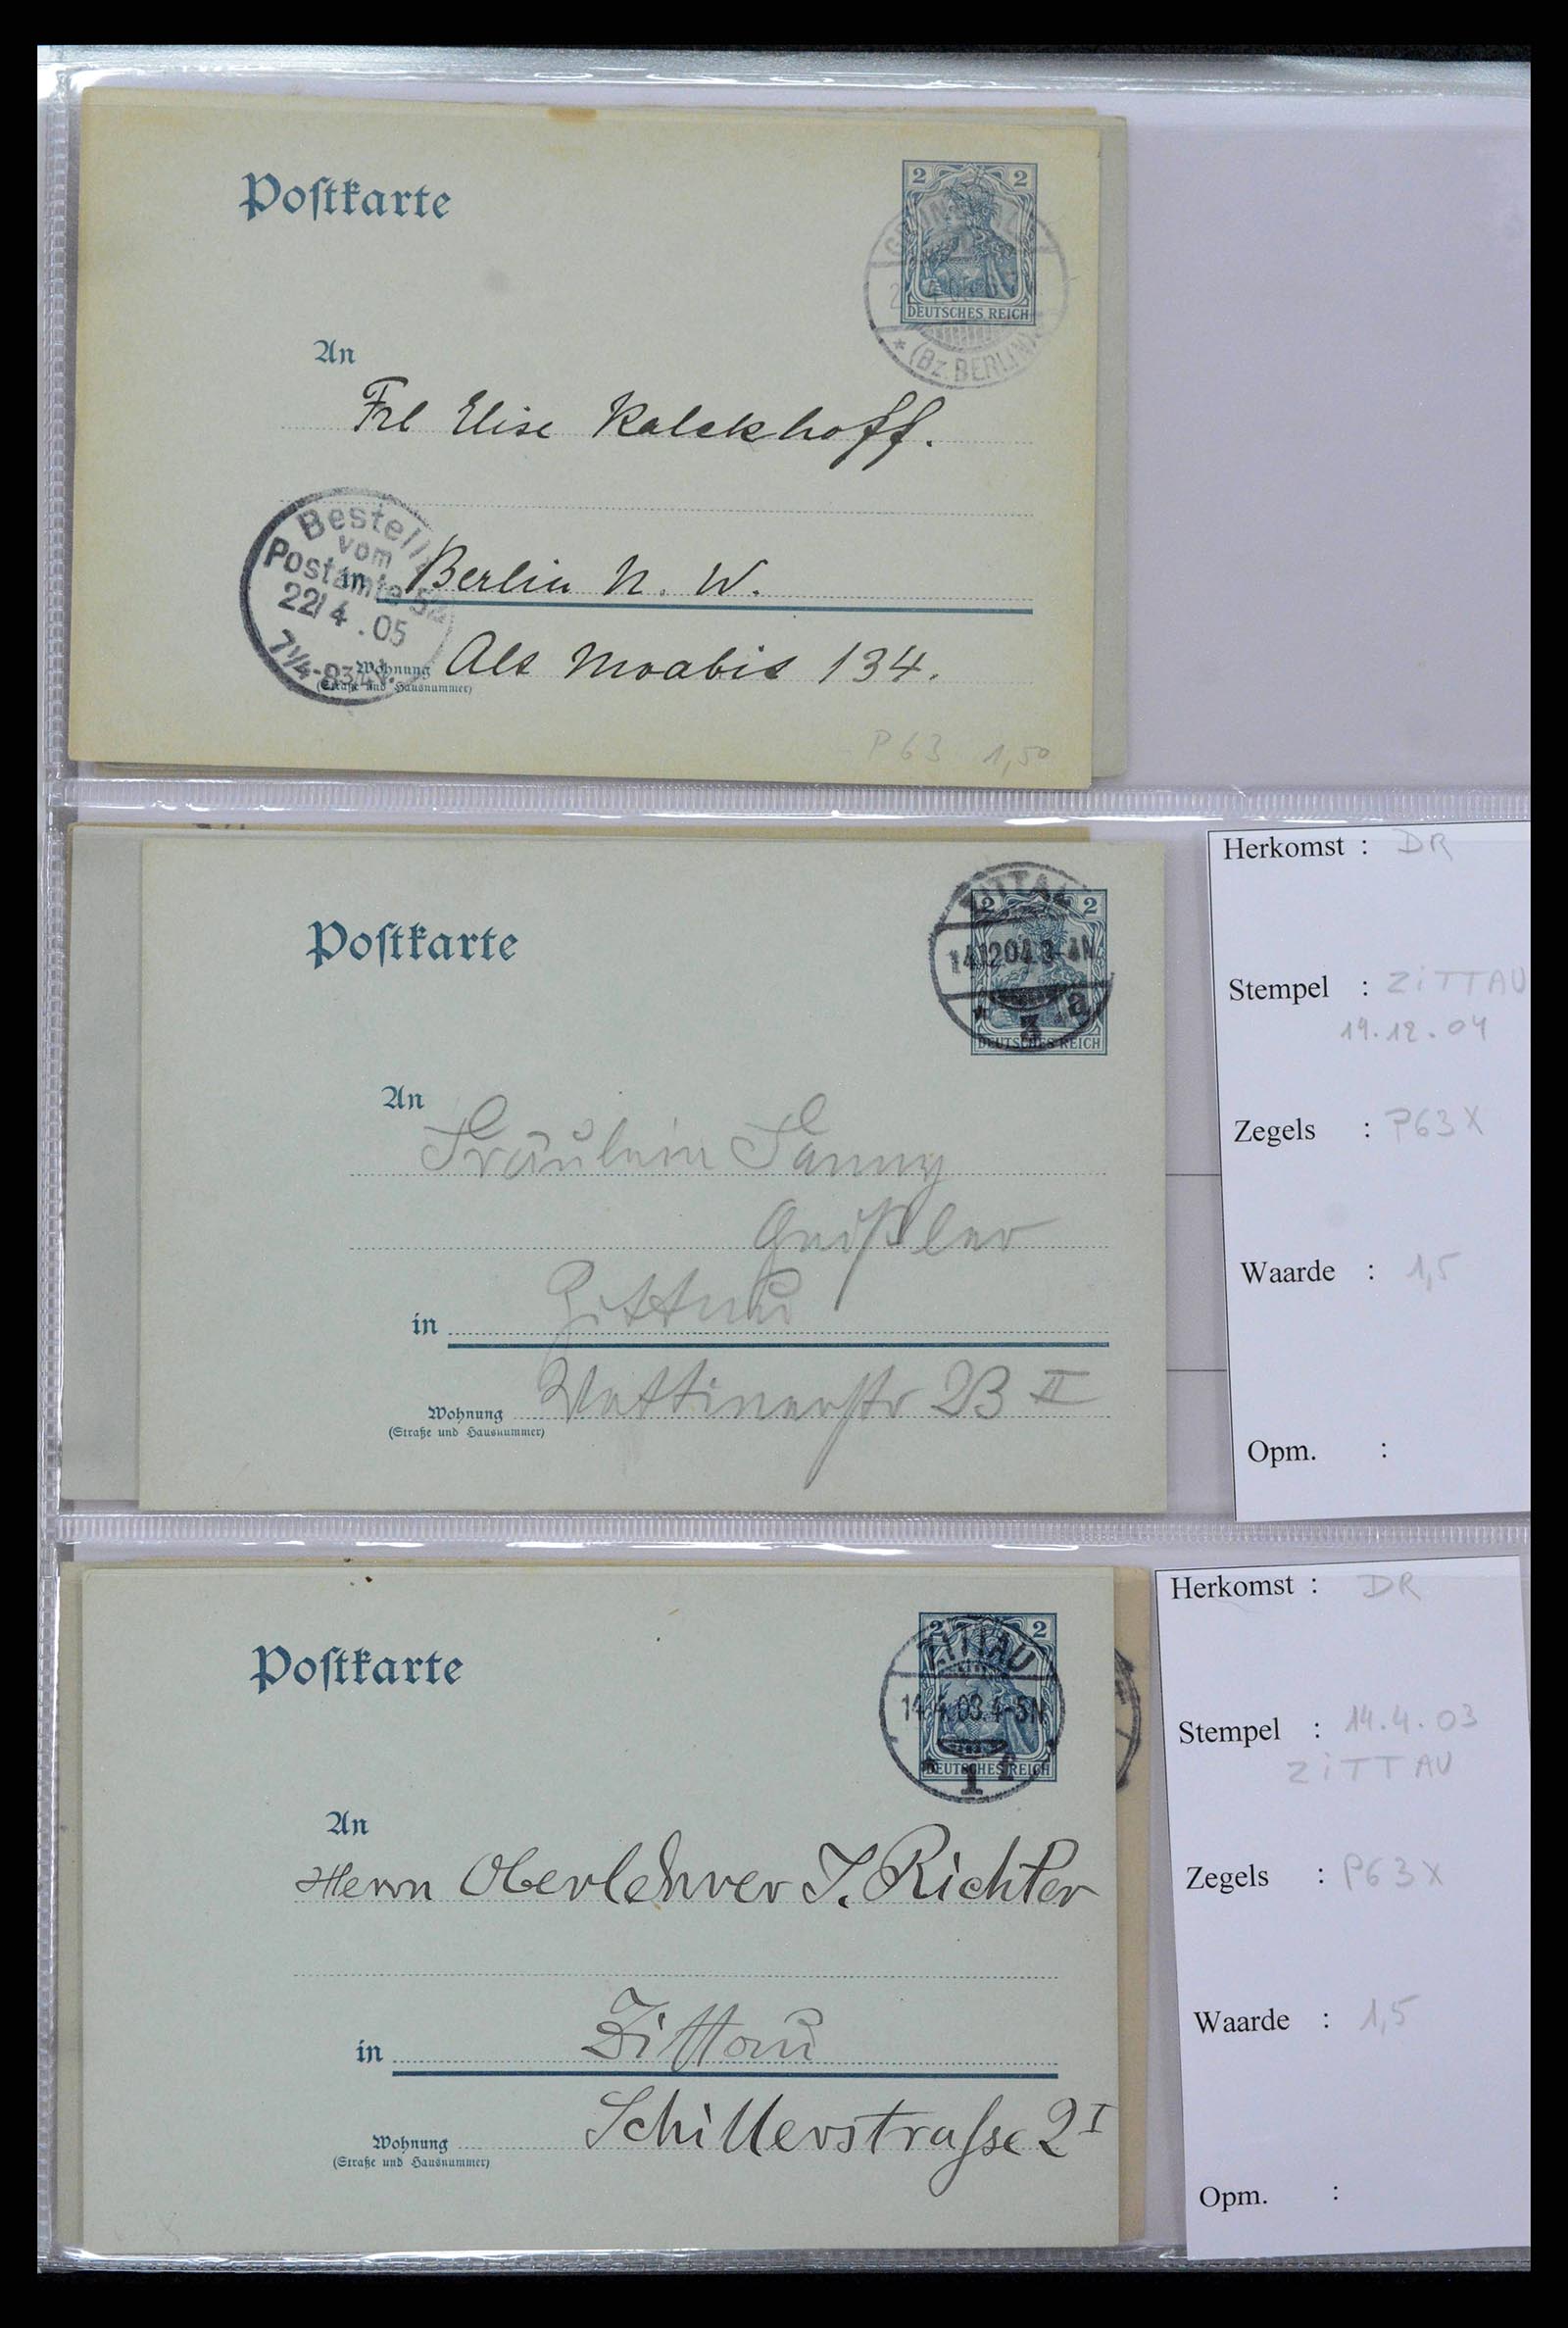 Postkarte
2 2
DEUTSCHES REICH
(Bz. BERLIN)
An
Frl Elise Kalckhoff.
Bestellt
vom
Postamte 52
22/4.05
7¼-8¾V.
in Berlin N. W.
Wohnung Alt Moabit 134.
(Straße und Hausnummer)
P63 1,50
Postkarte
ZITTAU
2 2
14.12.04.3-4N.
* 3 a
DEUTSCHES REICH
An
Fräulein Fanny
Geißler
in Zittau
Wohnung Wettinerstr 23 II
(Straße und Hausnummer)
Herkomst : DR
Stempel : ZITTAU
19.12.04
Zegels : P63X
Waarde : 1,5
Opm. :
Postkarte
2 2
ZITTAU
14.4.03.4-5N.
* 1
DEUTSCHES REICH
An
Herrn Oberlehrer J. Richter
in Zittau
Wohnung Schillerstrasse 2 I
(Straße und Hausnummer)
Herkomst : DR
Stempel : 14.4.03
ZITTAU
Zegels : P63X
Waarde : 1,5
Opm. :